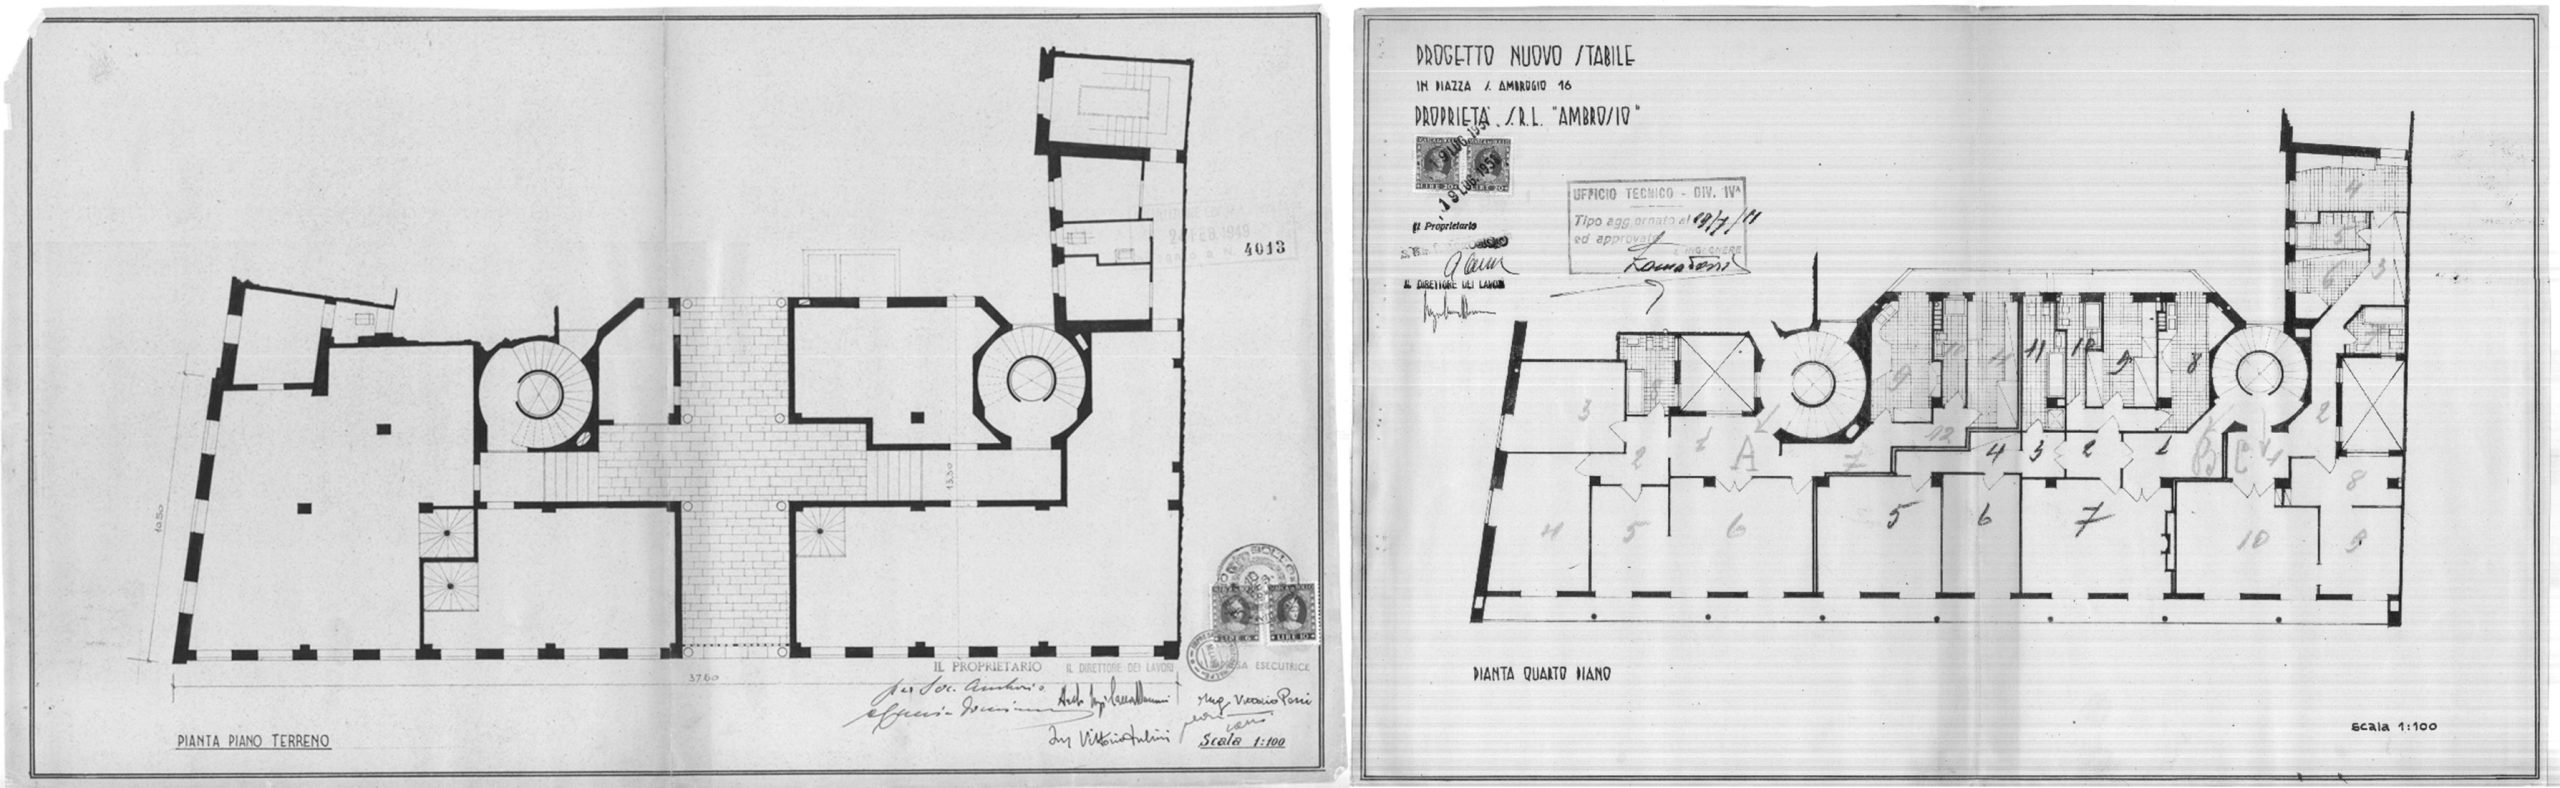 24 FEB 1949
4013
13.30
10.50
LIRE 6
LIRE 10
IL PROPRIETARIO
IL DIRETTORE DEI LAVORI
ESECUTRICE
37.60
per Soc. Ambrosio
Ing. Vittorio
Scala 1:100
PIANTA PIANO TERRENO
PROGETTO NUOVO STABILE
IN PIAZZA S. AMBROGIO 16
PROPRIETÀ S.R.L. "AMBROSIO"
19 LUG. 1951
19 LUG. 1951
LIRE 20
LIRE 20
UFFICIO TECNICO - DIV. IVª
Tipo aggiornato al 19/7/51
ed approvato
L'INGEGNERE
Il Proprietario
IL DIRETTORE DEI LAVORI
4
5
6
3
7
3
9
11
4
11
10
9
8
2
1
A
7
12
4
3
2
1
B
C
1
2
8
4
5
6
5
6
7
10
9
PIANTA QUARTO PIANO
Scala 1:100